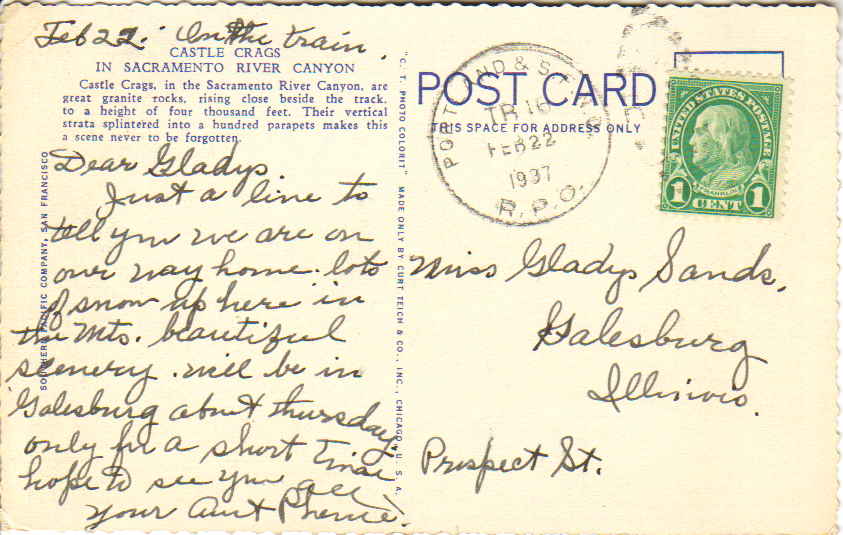 Feb 22. On the train.
CASTLE CRAGS
IN SACRAMENTO RIVER CANYON
Castle Crags, in the Sacramento River Canyon, are
great granite rocks, rising close beside the track.
to a height of four thousand feet. Their vertical
strata splintered into a hundred parapets makes this
a scene never to be forgotten.
Dear Gladys.
Just a line to
tell you we are on
our way home. lots
of snow up here in
the Mts. beautiful
scenery. will be in
Galesburg about thursday.
only for a short time
hope to see you all
your Aunt Phenie.
SOUTHERN PACIFIC COMPANY, SAN FRANCISCO
"C. T. PHOTO COLORIT" MADE ONLY BY CURT TEICH & CO., INC., CHICAGO, U. S. A.
POST CARD
THIS SPACE FOR ADDRESS ONLY
PORTLAND & S.
TR 16
FEB 22
1937
R.P.O.
UNITED STATES POSTAGE
FRANKLIN
1 CENT 1
Miss Gladys Sands.
Galesburg
Illinois.
Prospect St.